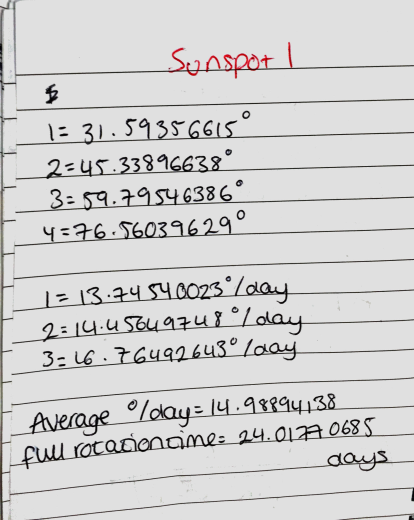 Sunspot 1
1= 31.59356615°
2=45.33896638°
3=59.79546386°
4=76.56039629°
1= 13.74540023°/day
2=14.45649748°/day
3=16.76492643°/day
Average °/day=14.98894138
full rotation time= 24.01770685
days